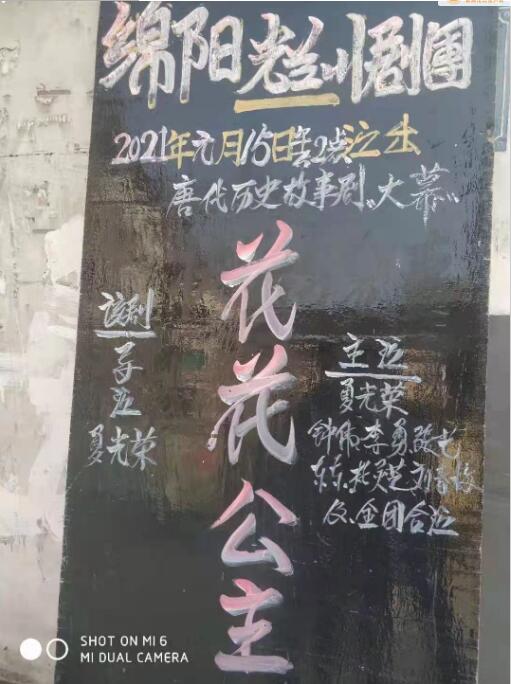 绵阳光兰川剧團
2021年元月15日下午2点演出
唐代历史故事剧"大幕"
花花公主
该剧
导演
夏光荣
主演
夏光荣
钟伟.李勇.
东东.
及.全团合演
SHOT ON MI 6
MI DUAL CAMERA